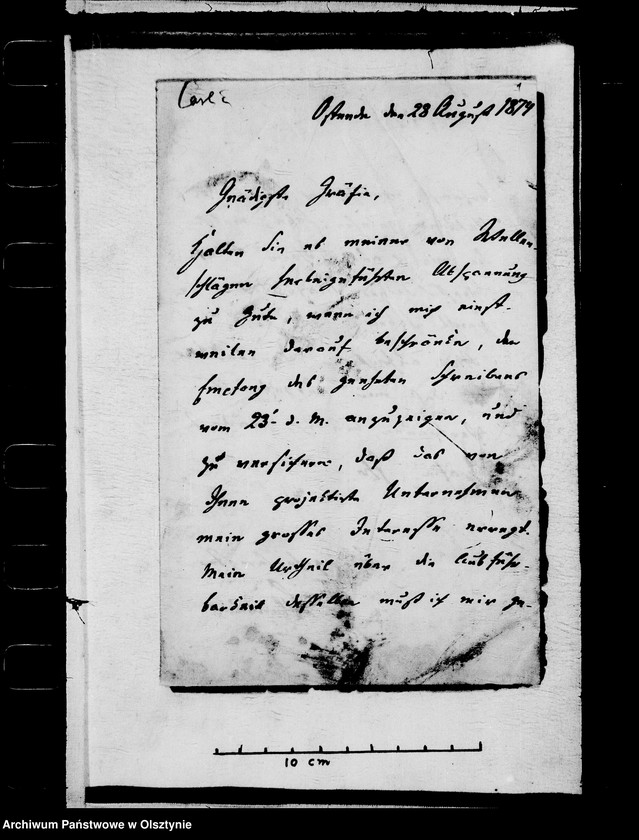 Ostende den 28 August 1874
Gnädigste Gräfin,
Halten Sie es meiner von Wellen-
schlägen herbeigeführten Abspannung
zu Gute, wenn ich mich einst-
weilen darauf beschränke, den
Empfang des geehrten Schreibens
vom 23t d. M. anzuzeigen, und
zu versichern, daß das von
Ihnen projektirte Unternehmen
mein grosses Interesse erregt.
Mein Urtheil über die Ausführ-
barkeit desselben muß ich mir ge-
10 cm
Archiwum Państwowe w Olsztynie